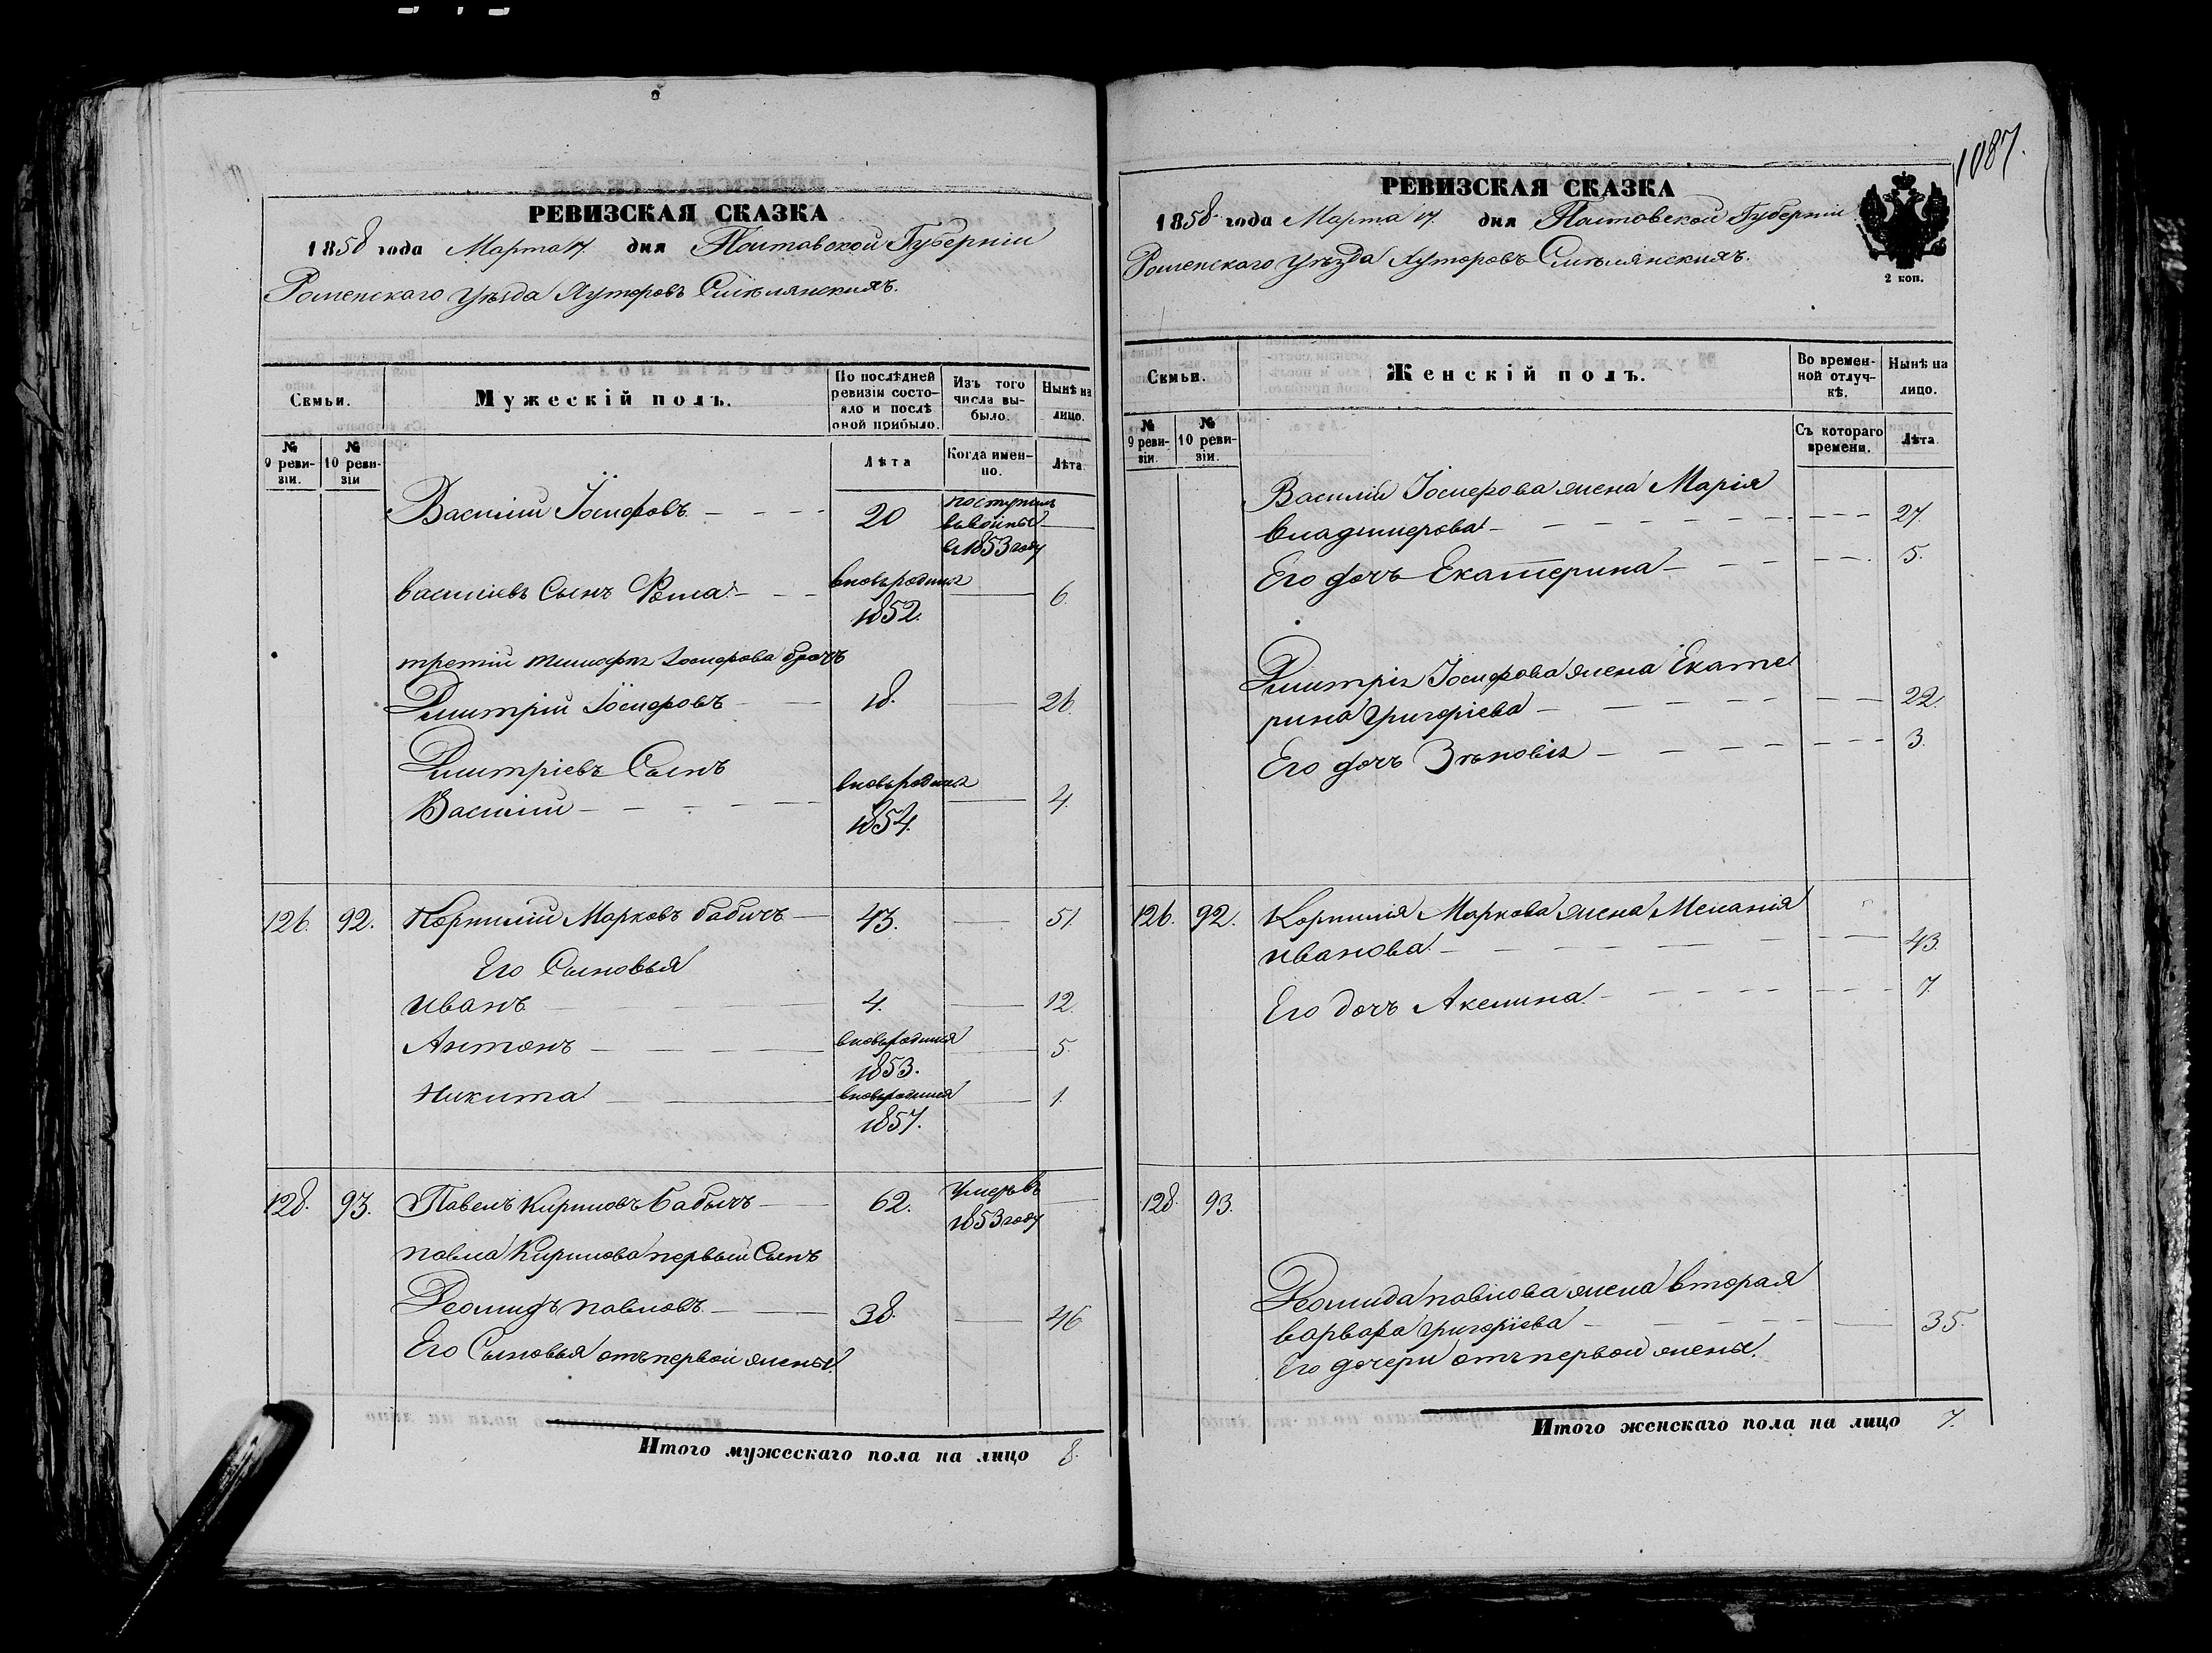 РЕВИЗСКАЯ СКАЗКА
1858 года Марта 17 дня Полтавской Губерніи
Роменскаго уѣзда Хуторовъ Смѣлянскихъ.
Семьи.
Мужескій полъ.
По послѣдней ревизіи состояло и послѣ оной прибыло.
Изъ того числа выбыло.
Нынѣ на лицо.
№ 9 ревизіи.
№ 10 ревизіи
Лѣта
Когда именно.
Лѣта
Василій Іосифовъ 20 поступилъ
въ 1853 году
Василіевъ Сынъ Фома вновьродился 1852. 6.
третій Іосифова братъ
Дмитрій Іосифовъ 18. 26
Дмитріевъ Сынъ
Василій вновьродился 1854. 4.
126. 92. Корнилій Марковъ бабичъ 43. 51.
Его Сыновья
Иванъ 4. 12.
Антонъ вновьродился 1853. 5.
Никита вновьродился 1857. 1.
128. 93. Павелъ Кириловъ Бабичъ 62. Умеръ въ 1853 году
Павла Кирилова первый Сынъ
Деомидъ Павловъ 38. 46
Его Сыновья отъ первой жены.
Итого мужескаго пола на лицо 8.
1087.
РЕВИЗСКАЯ СКАЗКА
1858 года Марта 17. дня Полтавской Губерніи
Роменскаго уѣзда Хуторовъ Смѣлянскихъ.
2 коп.
Семьи.
Женскій полъ.
Во временной отлучкѣ.
Нынѣ на лицо.
№ 9 ревизіи.
№ 10 ревизіи.
Съ котораго времени.
Лѣта
Василія Іосифова жена Марія
Владимерова 27.
Его дочь Екатерина 5.
Дмитрія Іосифова жена Екате
рина Григоріева 22.
Его дочь Зѣновія 3.
126. 92. Корнилія Маркова жена Меланія
Иванова 43.
Его дочь Акелина 7.
128. 93.
Деомида Павлова жена вторая
Варвара Григоріева 35.
Его дочери отъ первой жены.
Итого женскаго пола на лицо 7.